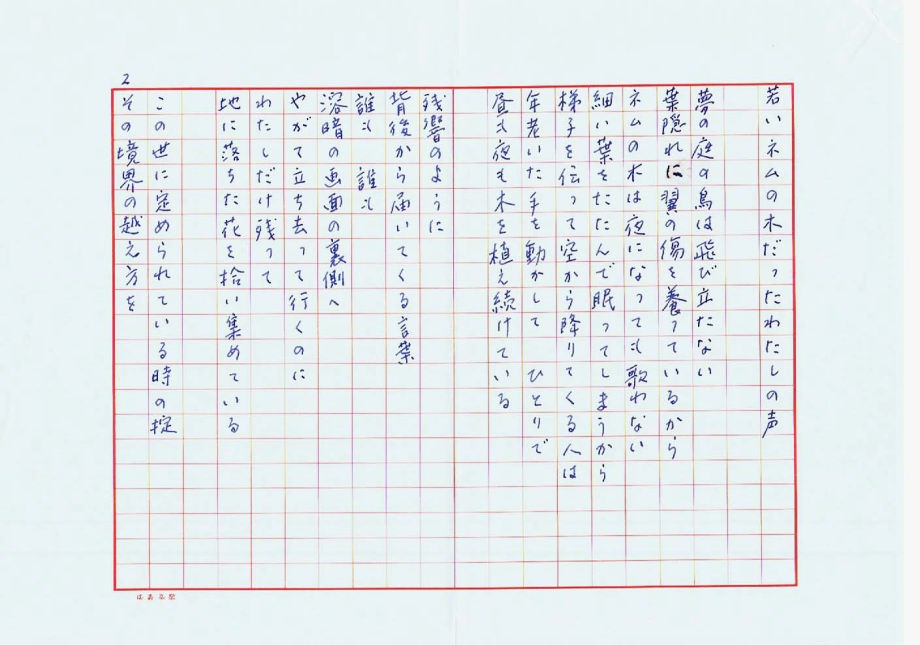 2
若いネムの木だったわたしの声
夢の庭の鳥は飛び立たない
葉隠れに翼の傷を養っているから
ネムの木は夜になっても歌わない
細い葉をたたんで眠ってしまうから
梯子を伝って空から降りてくる人は
年老いた手を動かして　ひとりで
昼も夜も木を植え続けている
残響のように
背後から届いてくる言葉
誰も　誰も
溶暗の画面の裏側へ
やがて立ち去って行くのに
わたしだけ残って
地に落ちた花を拾い集めている
この世に定められている時の掟
その境界の越え方を